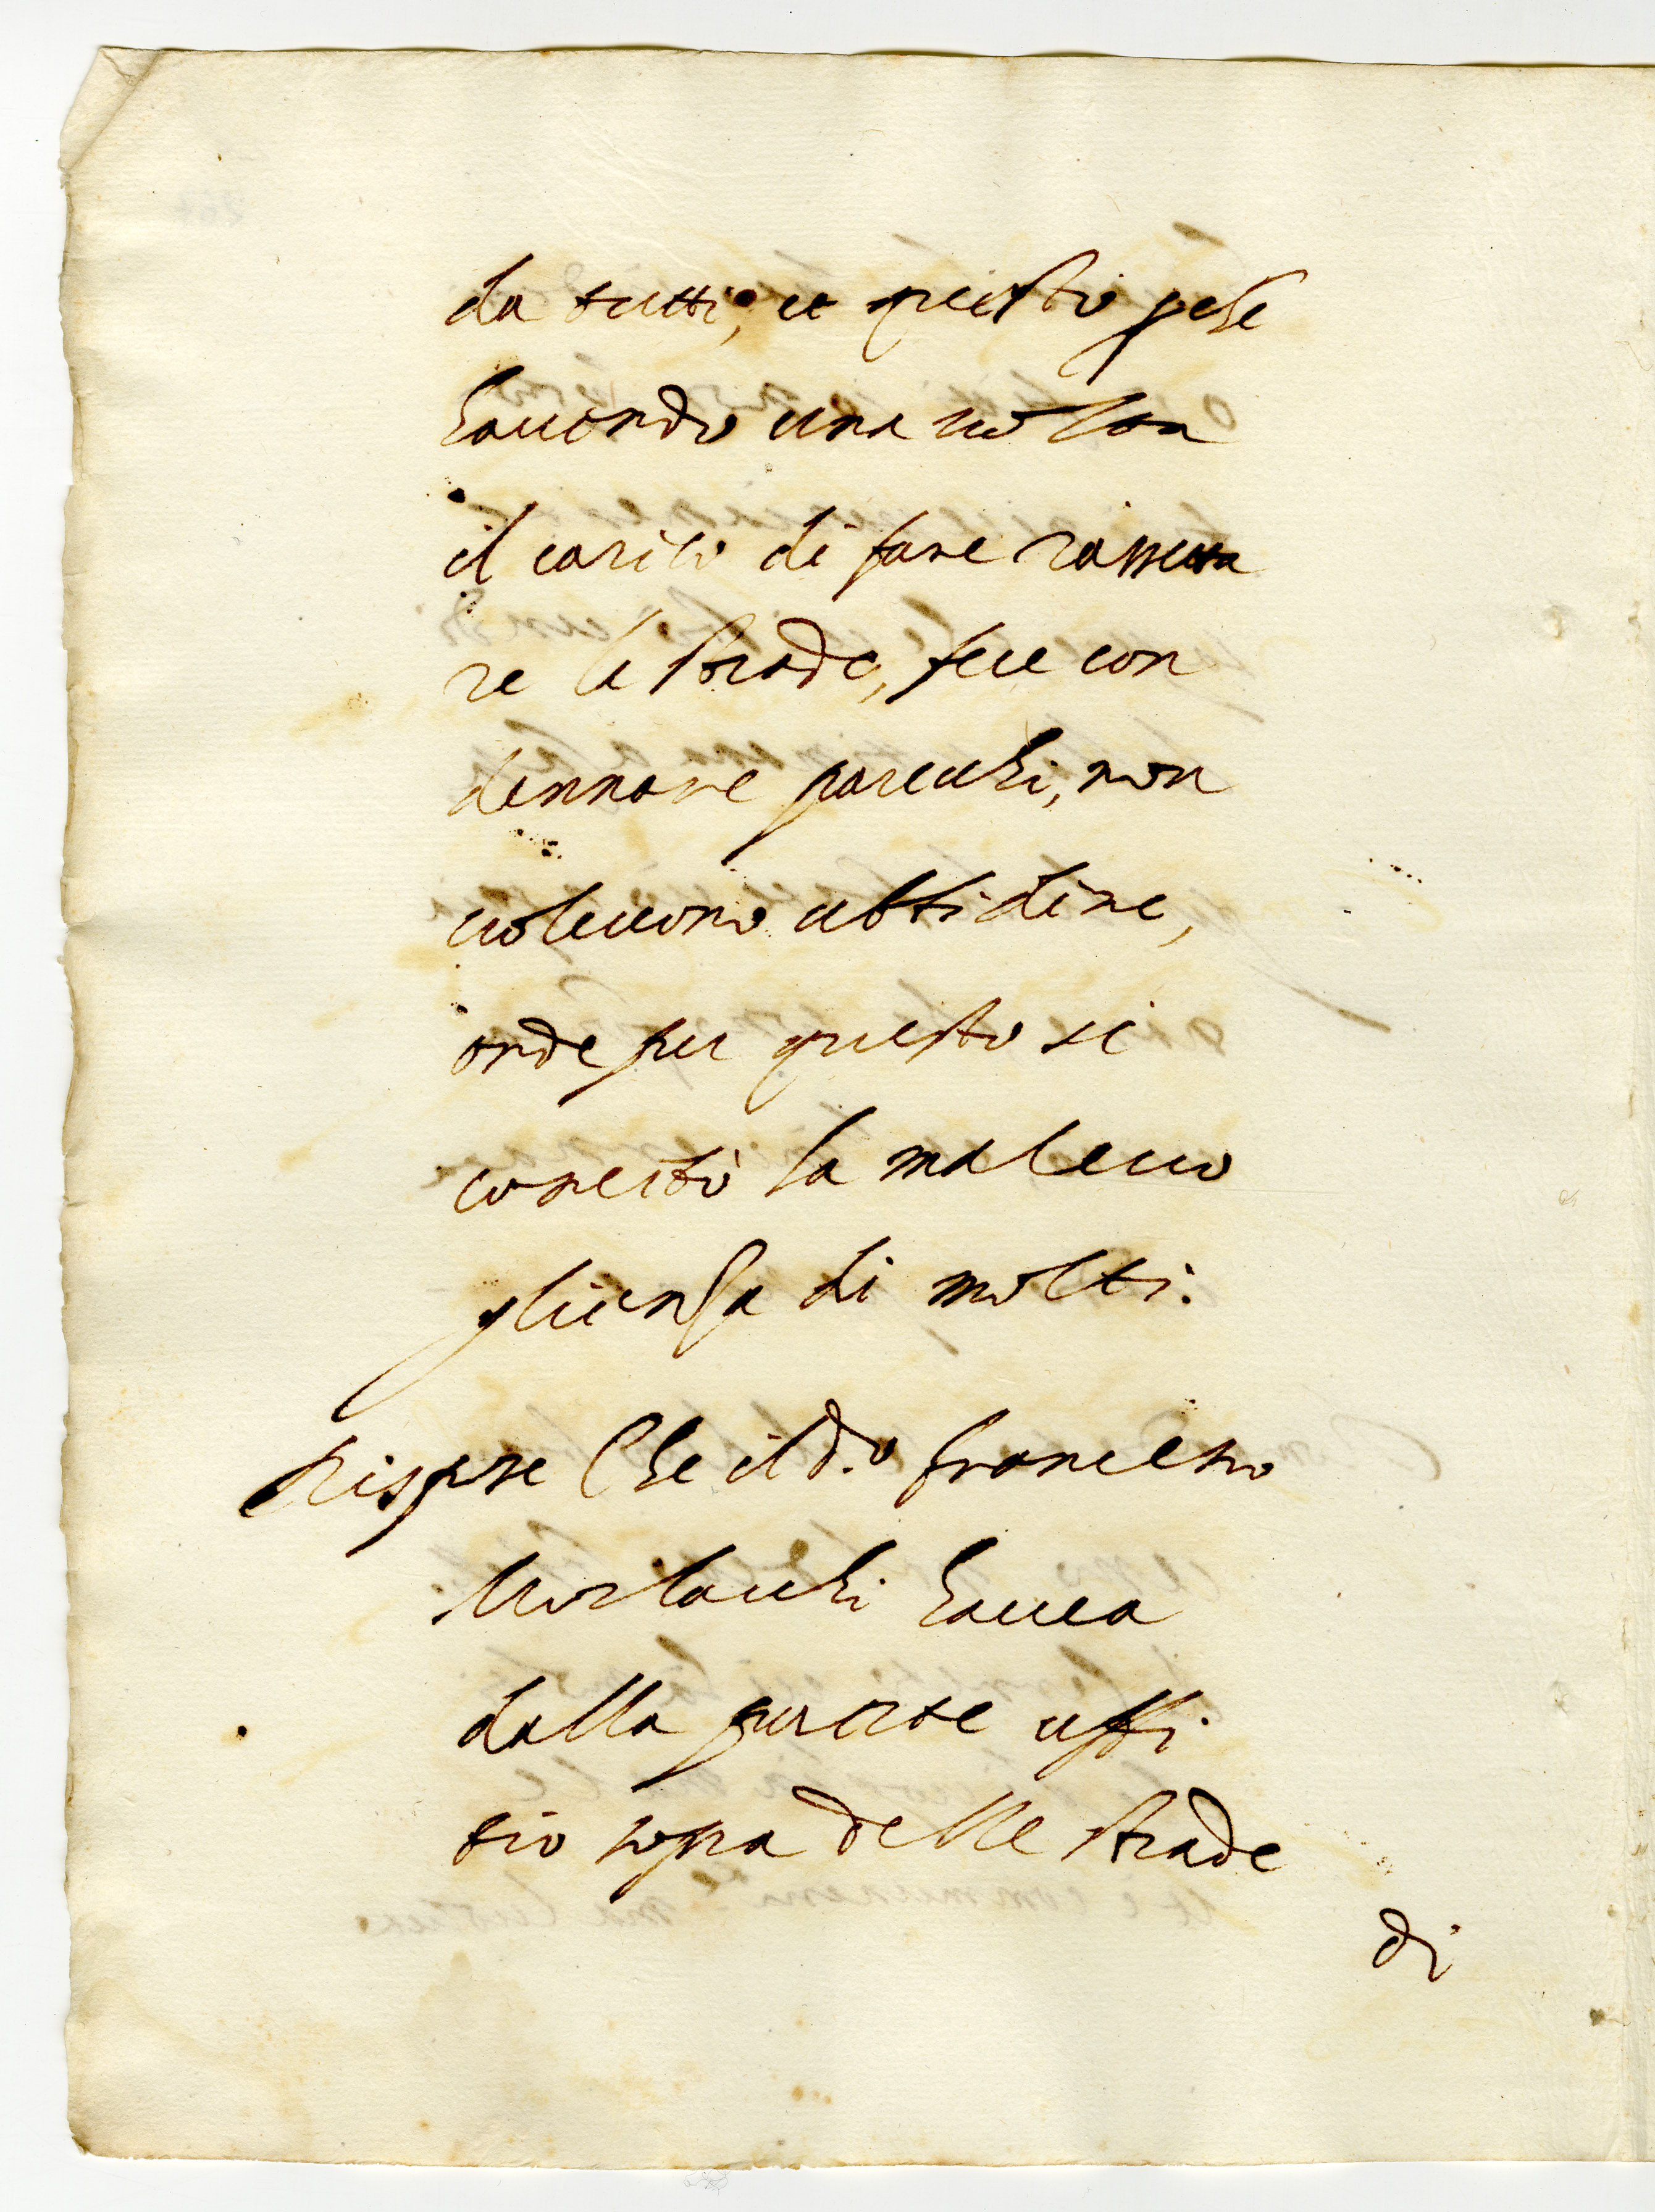 da tutti, et questo p che
hauendo una uolta
il carico di fare rassetta
re le strade, fece con
dennare parecchi, non
uoleuono ubbidire,
onde per questo si
concitò la maleuo
glienza di molti.
Rispose Che il d.o francesco
Morlacchi hauea
dalla parte uffi
tio sopra delle strade
di